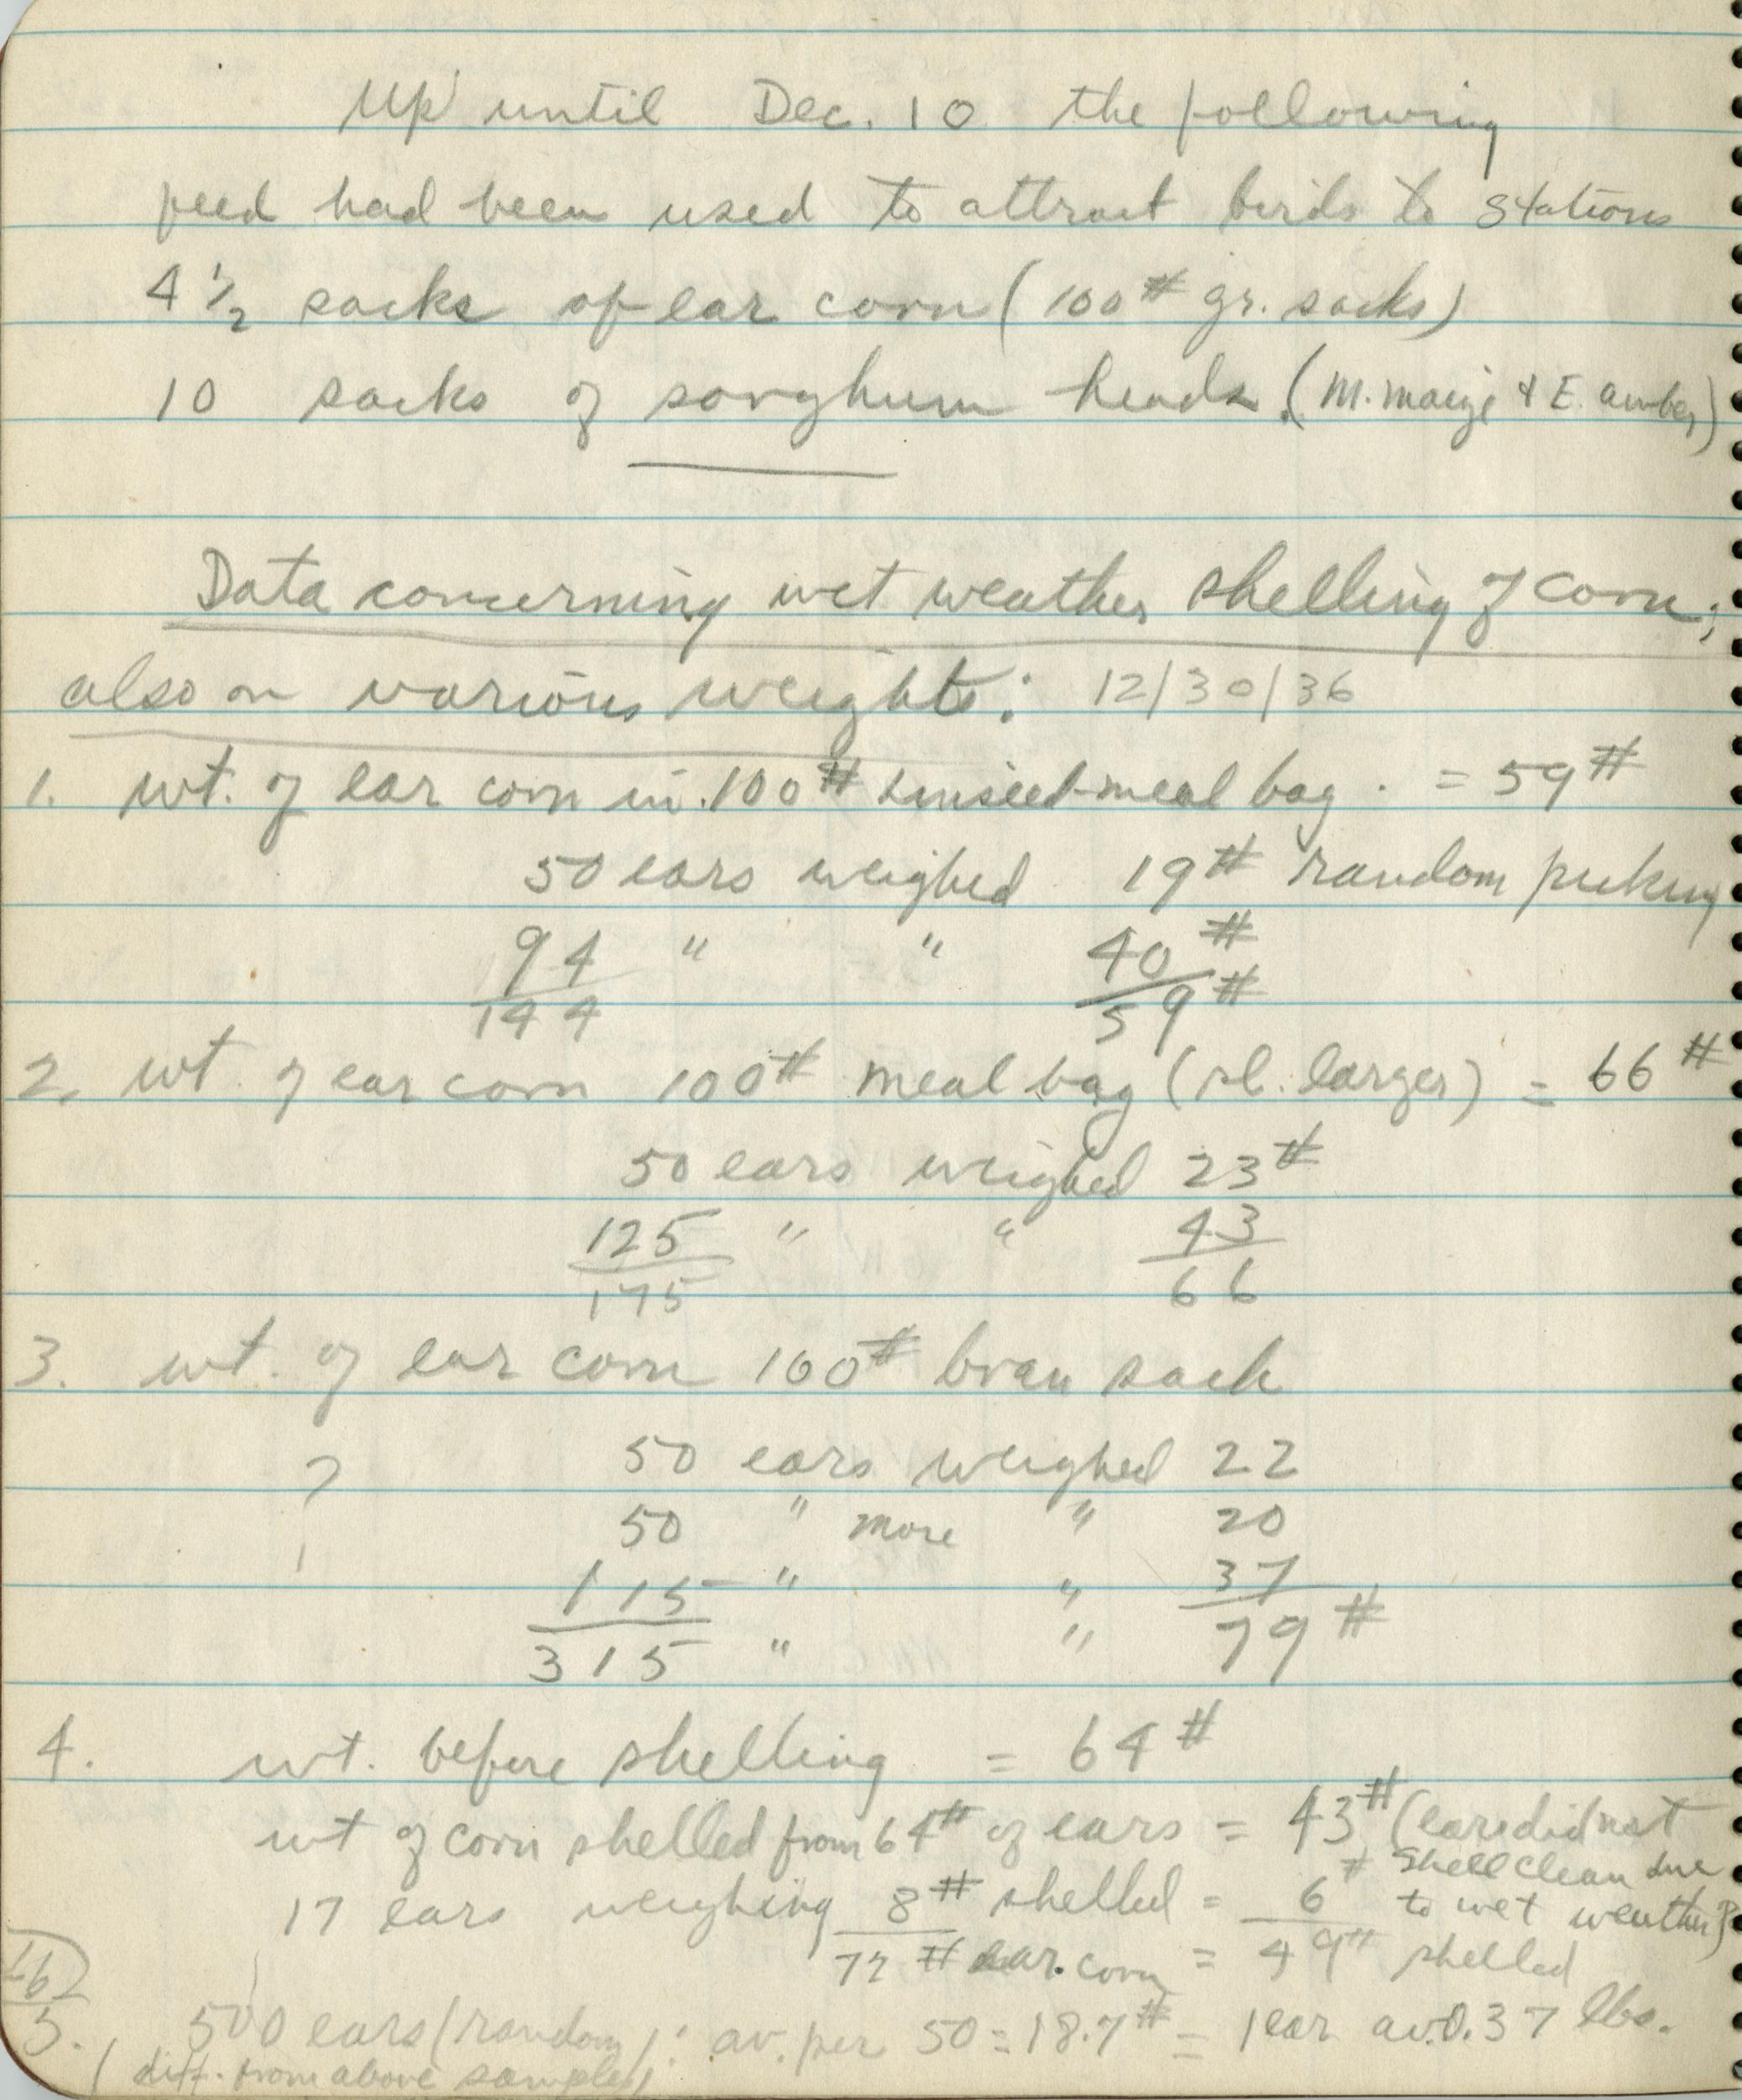 Up until Dec. 10 the following
feed had been used to attract birds to stations
4 1/2 sacks of ear corn (100# gr. sacks)
10 sacks of sorghum heads (M. maize & E. amber)
Data concerning wet weather shelling of corn;
also on various weights: 12/30/36
1. wt. of ear corn in 100# Linseed-meal bag. = 59#
50 ears weighed 19# random picking
94 " " 40#
144 59#
2. wt. of ear corn 100# meal bag (sl. larger) = 66#
50 ears weighed 23#
125 " " 43
175 66
3. wt. of ear corn 100# bran sack
? 50 ears weighed 22
50 " more " 20
115 " " 37
315 " " 79#
4. wt. before shelling = 64#
wt of corn shelled from 64# of ears = 43# (ears did not
shell clean due
17 ears weighing 8# shelled = 6# to wet weather)
72# ear corn = 49# shelled
5. 500 ears (random): av. per 50 = 18.7# = 1 ear av. 0.37 lbs.
(diff. from above samples)